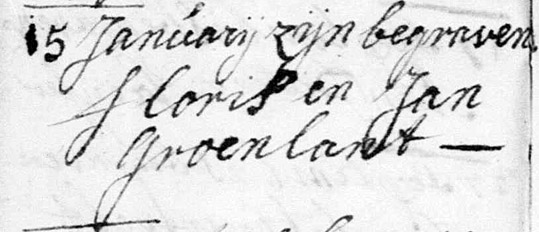 15 Januarij zijn begraven
Floris en Jan
Groenlant —